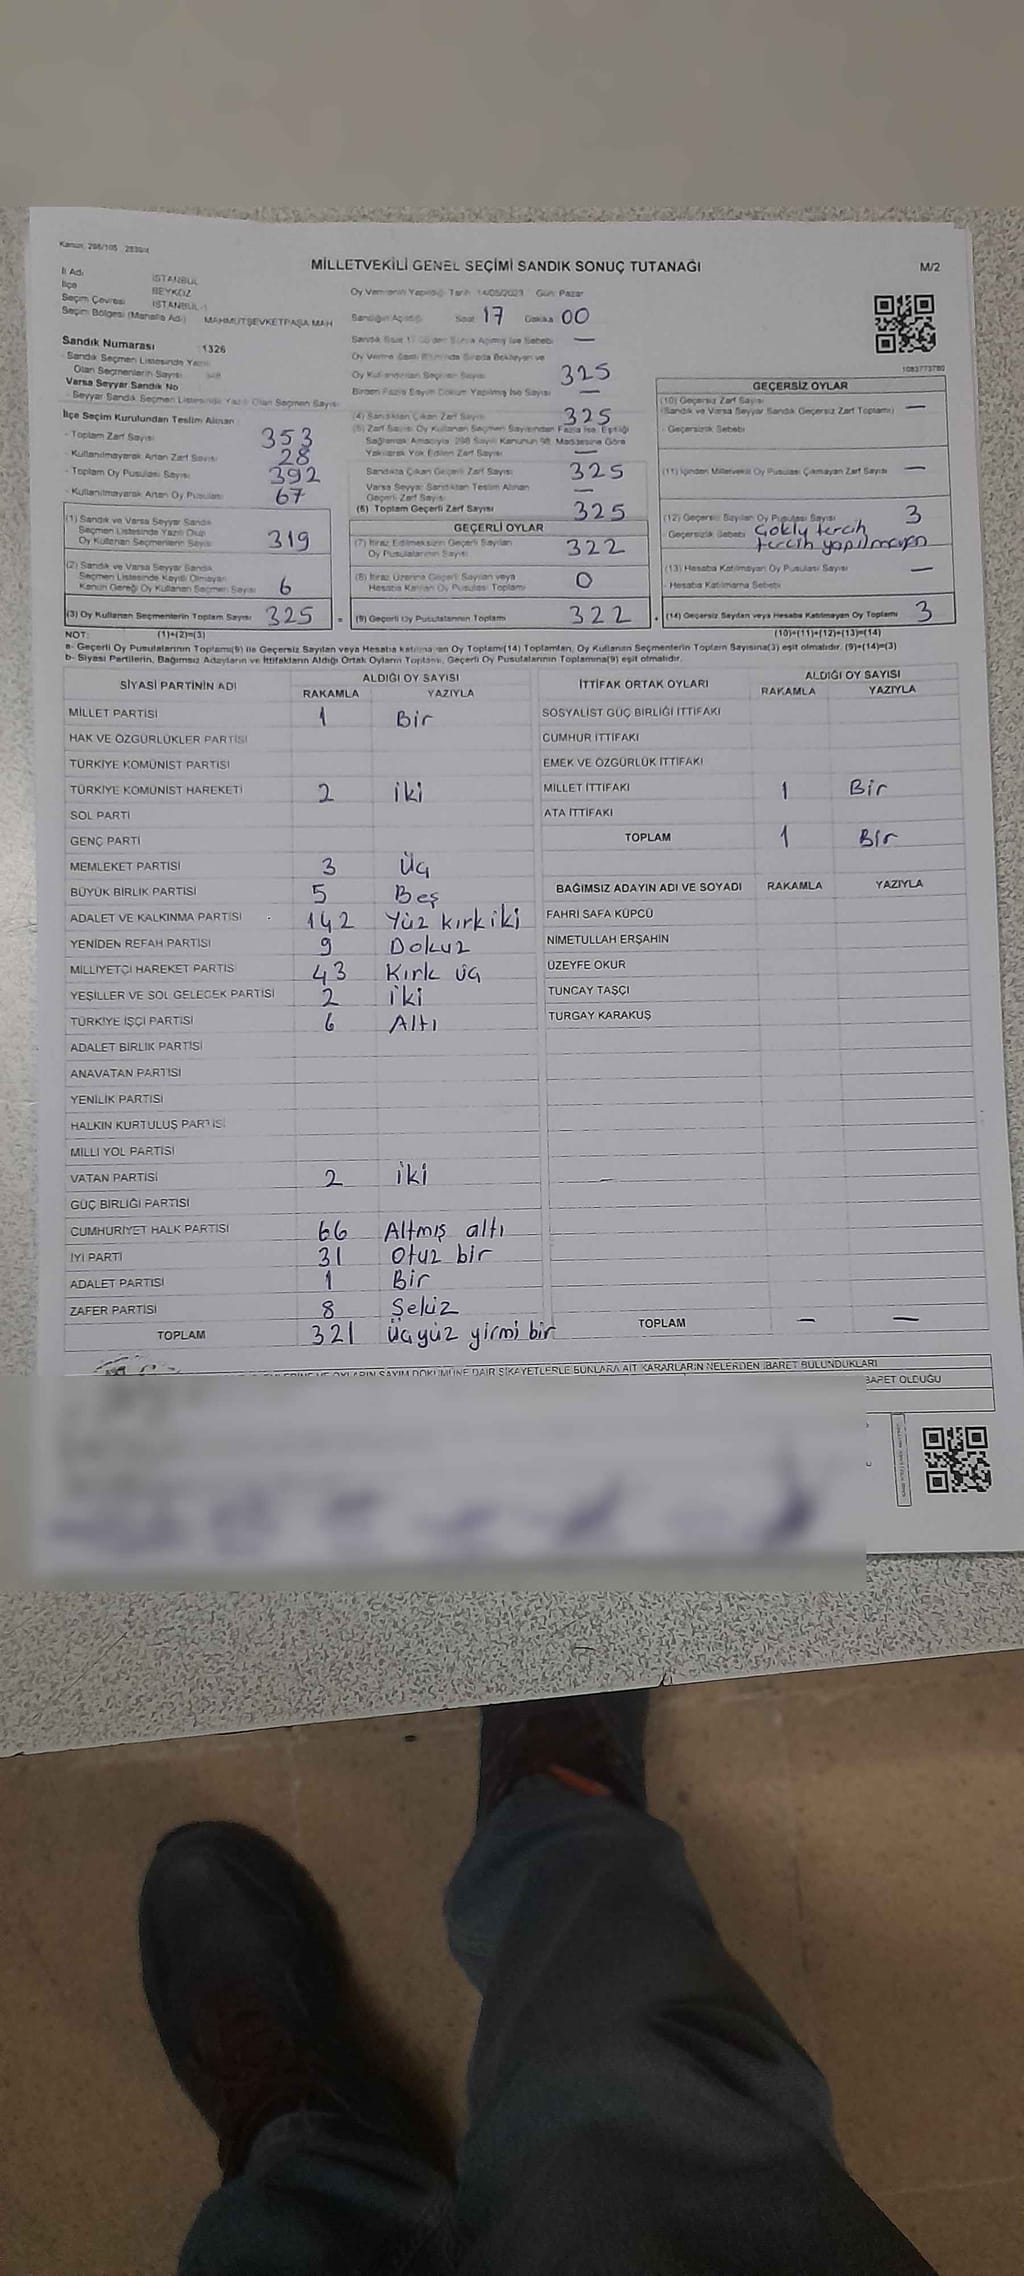 MİLLETVEKİLİ GENEL SEÇİMİ SANDIK SONUÇ TUTANAĞI
M/2
İl Adı İSTANBUL
İlçe BEYKOZ
Seçim Çevresi İSTANBUL-1
Seçim Bölgesi (Mahalle Adı) MAHMUTŞEVKETPAŞA MAH
Oy Vermenin Yapıldığı Tarih 14/05/2023 Gün: Pazar
Sandığın Açıldığı Saat 17 Dakika 00
Sandık Numarası 1326
Sandık Seçmen Listesinde Yazılı
Olan Seçmenlerin Sayısı
Varsa Seyyar Sandık No
- Seyyar Sandık Seçmen Listesinde Yazılı Olan Seçmen Sayısı
İlçe Seçim Kurulundan Teslim Alınan
- Toplam Zarf Sayısı 353
- Kullanılmayarak Artan Zarf Sayısı 28
- Toplam Oy Pusulası Sayısı 392
- Kullanılmayarak Artan Oy Pusulası 67
(1) Sandık ve Varsa Seyyar Sandık
Seçmen Listesinde Yazılı Olup
Oy Kullanan Seçmenlerin Sayısı 319
(2) Sandık ve Varsa Seyyar Sandık
Seçmen Listesinde Kayıtlı Olmayan
Kanun Gereği Oy Kullanan Seçmen Sayısı 6
(3) Oy Kullanan Seçmenlerin Toplam Sayısı 325
Oy Kullandırılan Seçmen Sayısı 325
Birden Fazla Sayım Döküm Yapılmış İse Sayısı —
(4) Sandıktan Çıkan Zarf Sayısı 325
(5) Zarf Sayısı Oy Kullanan Seçmen Sayısından Fazla İse, Eşitliği
Sağlamak Amacıyla 298 Sayılı Kanunun 98. Maddesine Göre
Yakılarak Yok Edilen Zarf Sayısı —
Sandıkta Çıkan Geçerli Zarf Sayısı 325
Varsa Seyyar Sandıktan Teslim Alınan
Geçerli Zarf Sayısı —
(6) Toplam Geçerli Zarf Sayısı 325
GEÇERLİ OYLAR
(7) İtiraz Edilmeksizin Geçerli Sayılan
Oy Pusulalarının Sayısı 322
(8) İtiraz Üzerine Geçerli Sayılan veya
Hesaba Katılan Oy Pusulası Toplamı 0
(9) Geçerli Oy Pusulalarının Toplamı 322
1083773780
GEÇERSİZ OYLAR
(10) Geçersiz Zarf Sayısı
(Sandık ve Varsa Seyyar Sandık Geçersiz Zarf Toplamı) —
- Geçersizlik Sebebi
(11) İçinden Milletvekili Oy Pusulası Çıkmayan Zarf Sayısı —
(12) Geçersiz Sayılan Oy Pusulası Sayısı 3
Geçersizlik Sebebi Çoklu tercih
tercih yapılmayan
(13) Hesaba Katılmayan Oy Pusulası Sayısı —
- Hesaba Katılmama Sebebi
(14) Geçersiz Sayılan veya Hesaba Katılmayan Oy Toplamı 3
NOT: (1)+(2)=(3)
(10)+(11)+(12)+(13)=(14)
a- Geçerli Oy Pusulalarının Toplamı(9) ile Geçersiz Sayılan veya Hesaba katılmayan Oy Toplamı(14) Toplamları, Oy Kullanan Seçmenlerin Toplam Sayısına(3) eşit olmalıdır. (9)+(14)=(3)
b- Siyasi Partilerin, Bağımsız Adayların ve İttifakların Aldığı Ortak Oyların Toplamı, Geçerli Oy Pusulalarının Toplamına(9) eşit olmalıdır.
SİYASİ PARTİNİN ADI
ALDIĞI OY SAYISI
RAKAMLA YAZIYLA
MİLLET PARTİSİ 1 Bir
HAK VE ÖZGÜRLÜKLER PARTİSİ
TÜRKİYE KOMÜNİST PARTİSİ
TÜRKİYE KOMÜNİST HAREKETİ 2 iki
SOL PARTİ
GENÇ PARTİ
MEMLEKET PARTİSİ 3 Üç
BÜYÜK BİRLİK PARTİSİ 5 Beş
ADALET VE KALKINMA PARTİSİ 142 Yüz kırk iki
YENİDEN REFAH PARTİSİ 9 Dokuz
MİLLİYETÇİ HAREKET PARTİSİ 43 Kırk üç
YEŞİLLER VE SOL GELECEK PARTİSİ 2 iki
TÜRKİYE İŞÇİ PARTİSİ 6 Altı
ADALET BİRLİK PARTİSİ
ANAVATAN PARTİSİ
YENİLİK PARTİSİ
HALKIN KURTULUŞ PARTİSİ
MİLLİ YOL PARTİSİ
VATAN PARTİSİ 2 iki
GÜÇ BİRLİĞİ PARTİSİ
CUMHURİYET HALK PARTİSİ 66 Altmış altı
İYİ PARTİ 31 Otuz bir
ADALET PARTİSİ 1 Bir
ZAFER PARTİSİ 8 Sekiz
TOPLAM 321 Üçyüz yirmi bir
İTTİFAK ORTAK OYLARI
ALDIĞI OY SAYISI
RAKAMLA YAZIYLA
SOSYALİST GÜÇ BİRLİĞİ İTTİFAKI
CUMHUR İTTİFAKI
EMEK VE ÖZGÜRLÜK İTTİFAKI
MİLLET İTTİFAKI 1 Bir
ATA İTTİFAKI
TOPLAM 1 Bir
BAĞIMSIZ ADAYIN ADI VE SOYADI RAKAMLA YAZIYLA
FAHRİ SAFA KÜPCÜ
NİMETULLAH ERŞAHİN
ÜZEYFE OKUR
TUNCAY TAŞÇI
TURGAY KARAKUŞ
TOPLAM — —
OYLARIN SAYIM DÖKÜMÜNE DAİR ŞİKAYETLERLE BUNLARA AİT KARARLARIN NELERDEN İBARET BULUNDUKLARI
OLDUĞU